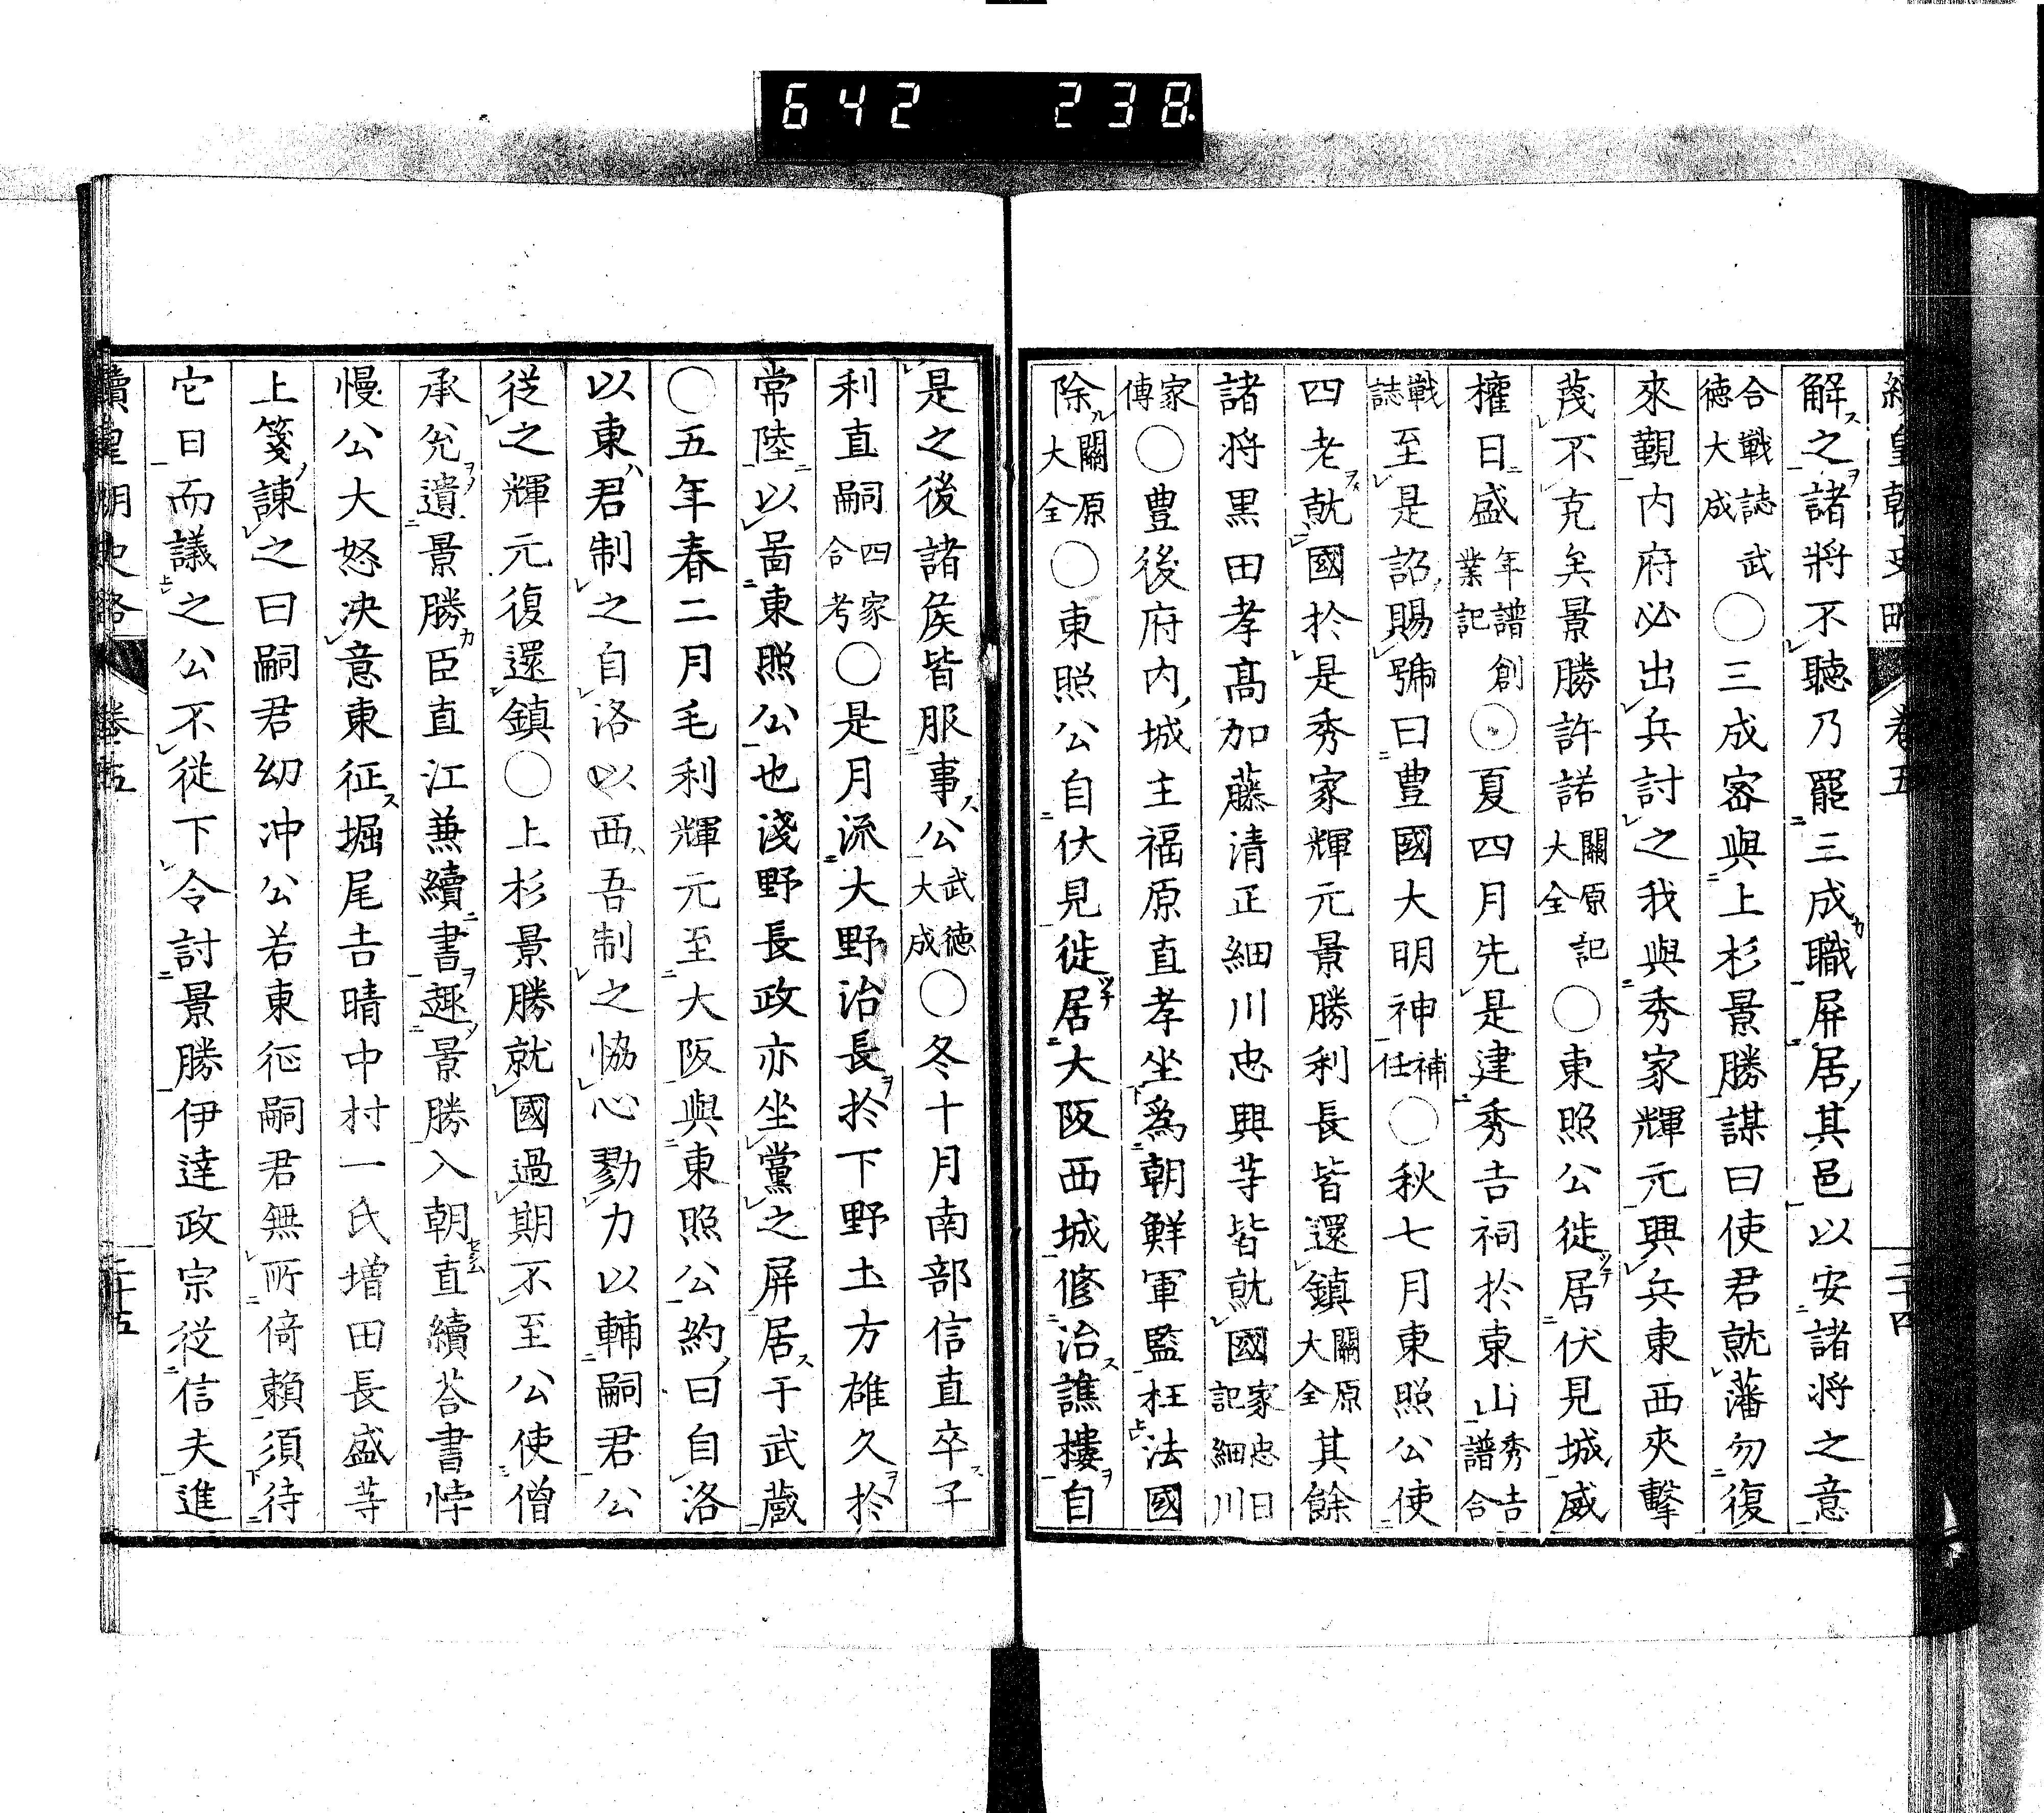 642 238
續皇朝史略 卷五 二十四
解之諸將不聽乃罷三成職屏居其邑以安諸将之意
合戰誌武德大成○三成密與上杉景勝謀曰使君就藩勿復
來覲内府必出兵討之我與秀家輝元興兵東西夾擊
蔑不克矣景勝許諾關原記大全○東照公徙居伏見城威
權日盛年譜創業記○夏四月先是建秀吉祠於東山秀吉譜合
戰誌至是詔賜號曰豊國大明神補任○秋七月東照公使
四老就國於是秀家輝元景勝利長皆還鎮關原大全其餘
諸将黒田孝高加藤清正細川忠興等皆就國家忠日記細川
家傳○豊後府内城主福原直孝坐為朝鮮軍監枉法國
除關原大全○東照公自伏見徙居大阪西城修治譙樓自
是之後諸侯皆服事公武徳大成○冬十月南部信直卒子
利直嗣四家合考○是月流大野治長於下野土方雄久於
常陸以啚東照公也淺野長政亦坐黨之屏居于武蔵
○五年春二月毛利輝元至大阪與東照公約曰自洛
以東君制之自洛以西吾制之恊心勠力以輔嗣君公
從之輝元復還鎮○上杉景勝就國過期不至公使僧
承兊遺景勝臣直江兼續書趣景勝入朝直續荅書悖
慢公大怒决意東征堀尾吉晴中村一氏増田長盛等
上箋諫之曰嗣君幼冲公若東征嗣君無所倚賴須待
它日而議之公不從下令討景勝伊達政宗從信夫進
續皇朝史略 卷五 二十五